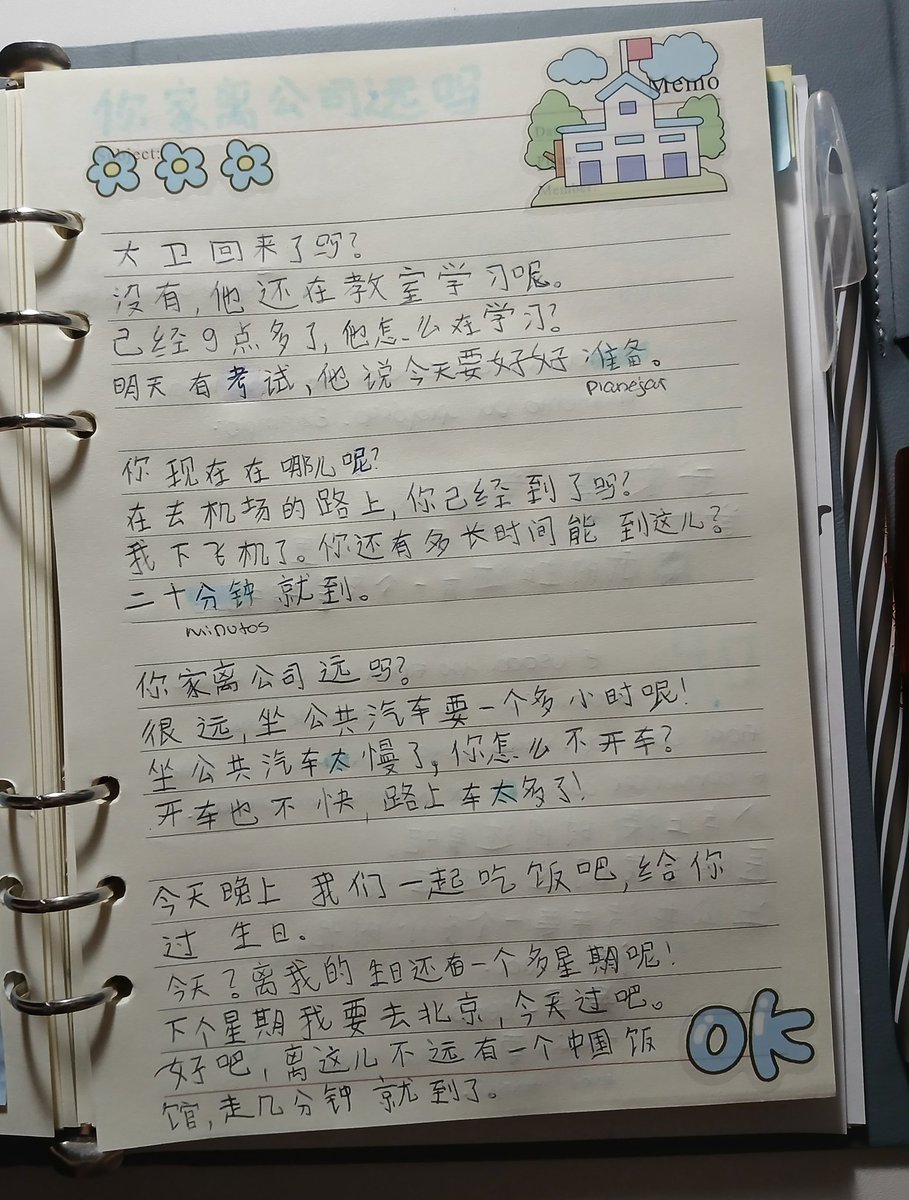 你家离公司远吗
Memo
大卫回来了吗?
没有,他还在教室学习呢。
己经9点多了,他怎么在学习?
明天有考试,他说今天要好好准备。
planejar
你现在在哪儿呢?
在去机场的路上,你己经到了吗?
我下飞机了。你还有多长时间能到这儿?
二十分钟就到。
minutos
你家离公司远吗?
很远,坐公共汽车要一个多小时呢!
坐公共汽车太慢了,你怎么不开车?
开车也不快,路上车太多了!
今天晚上我们一起吃饭吧,给你
过生日。
今天?离我的生日还有一个多星期呢!
下个星期我要去北京,今天过吧。
好吧,离这儿不远有一个中国饭
馆,走几分钟就到了。
OK